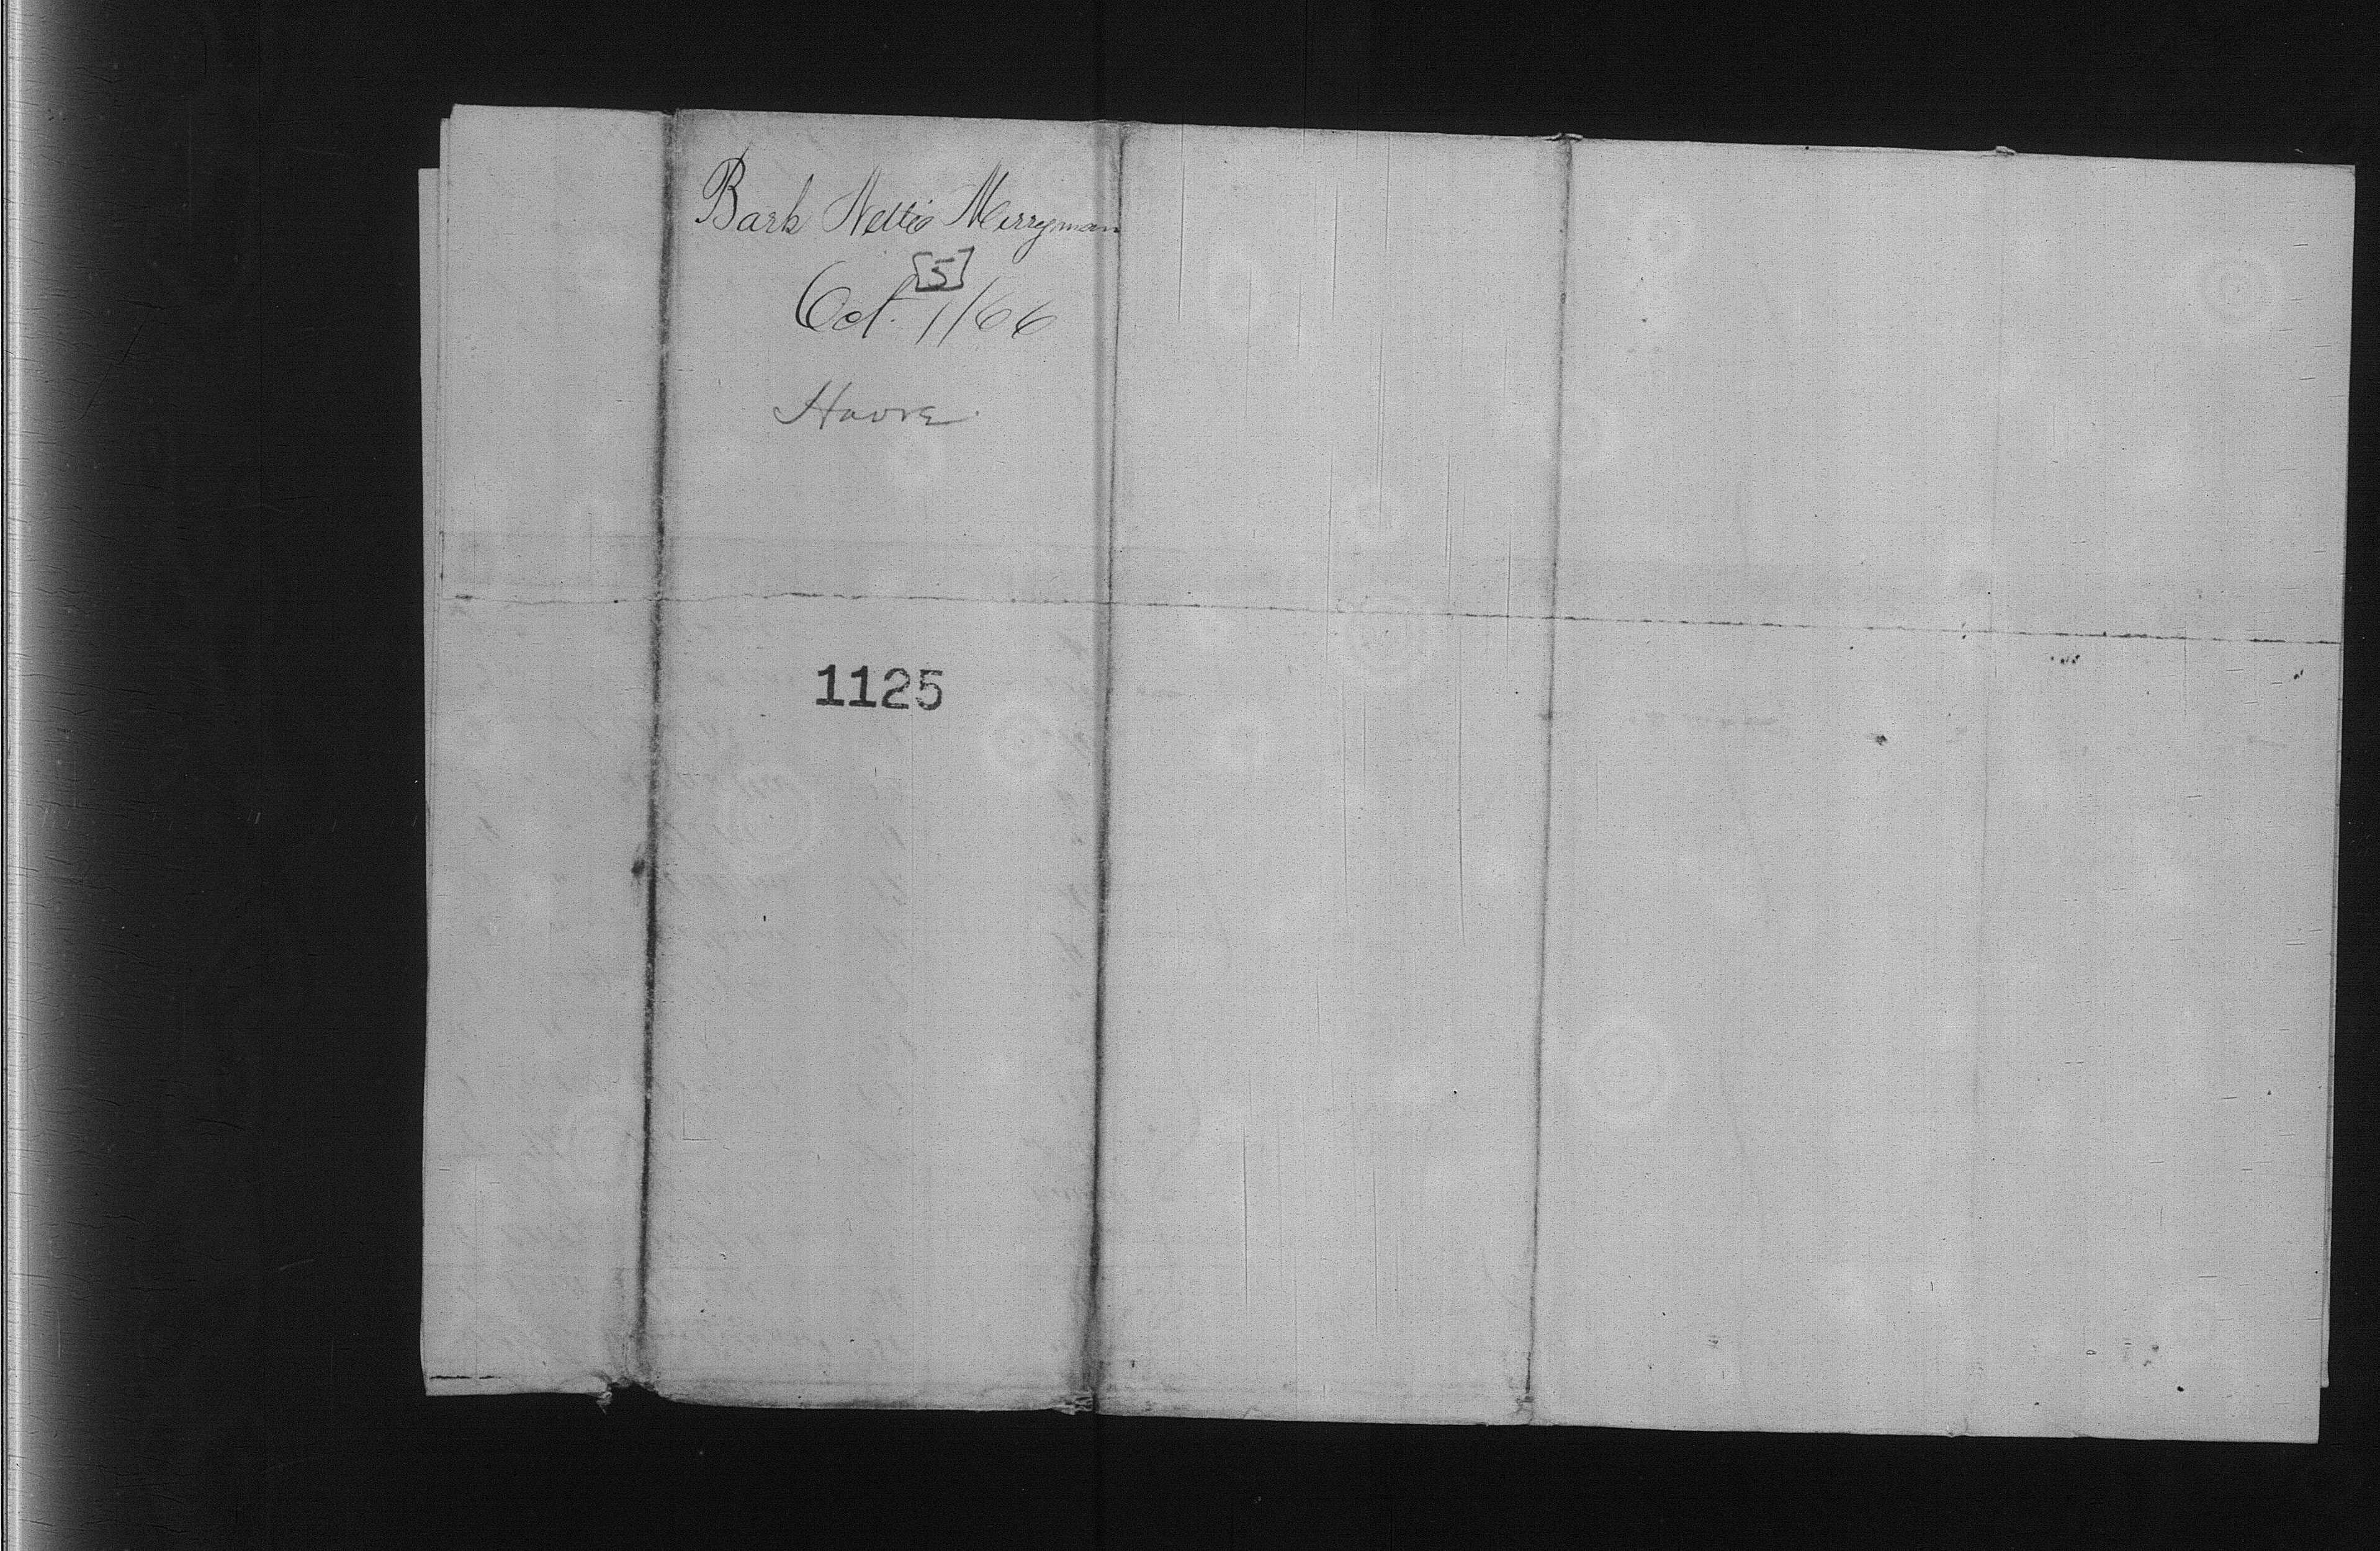 Bark Nettie Merryman
[5]
Oct. 1/66
Havre
1125